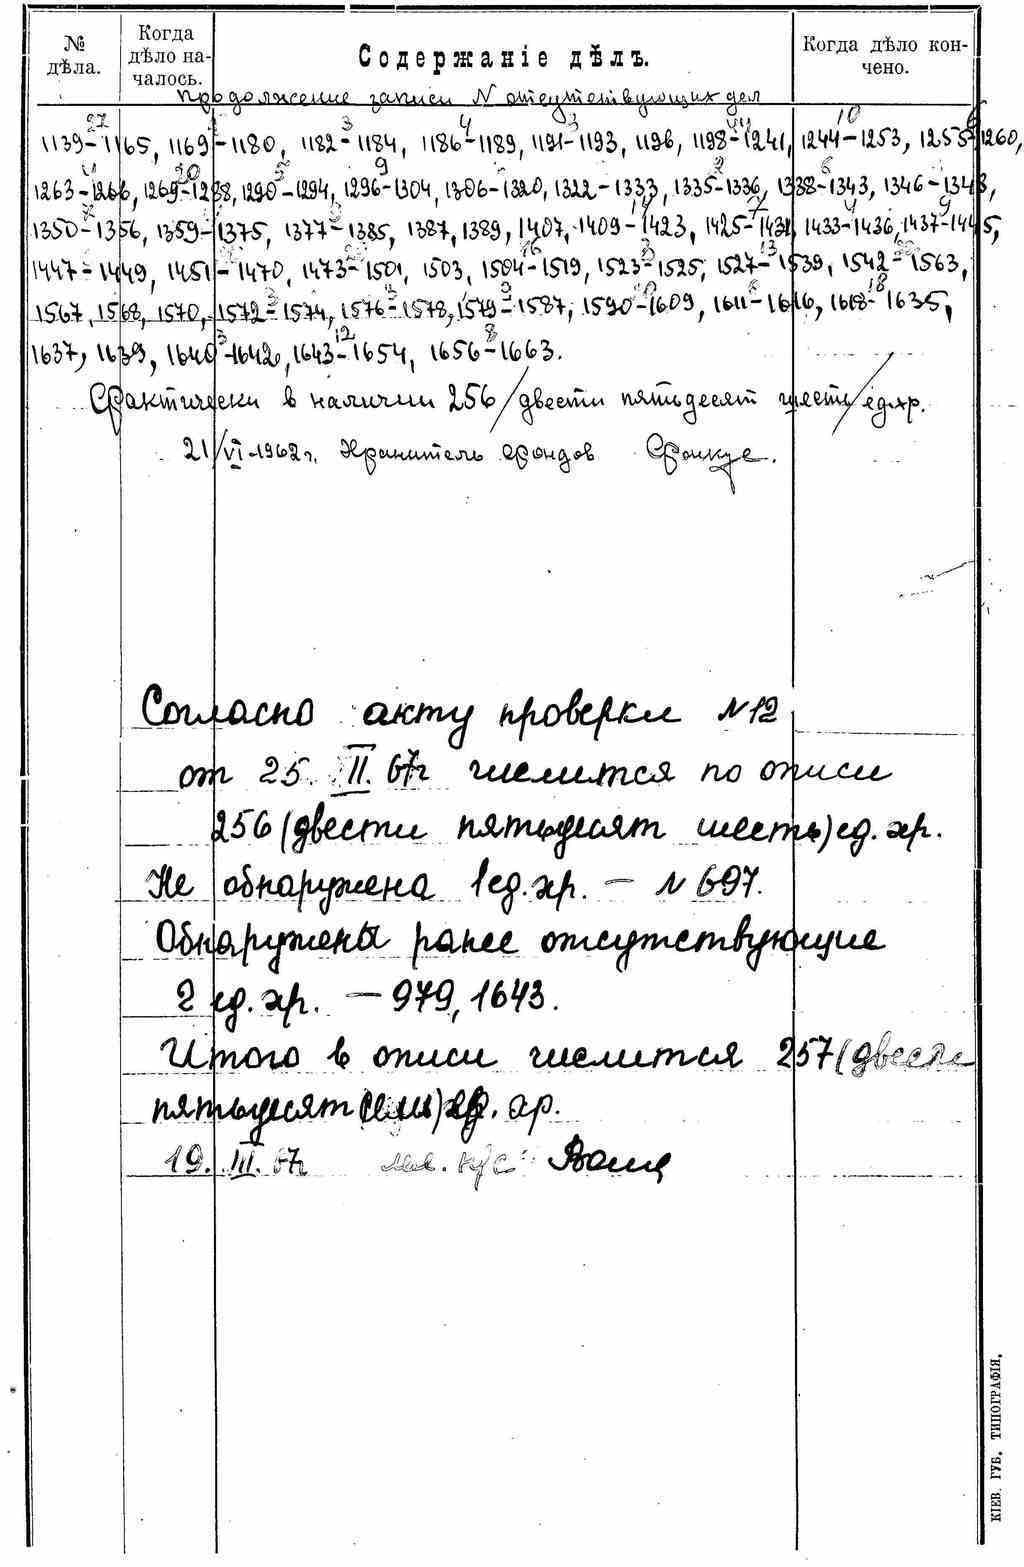 № дѣла.
Когда дѣло на-
чалось.
Содержаніе дѣлъ.
Когда дѣло кон-
чено.
продолжение записи N отсутствующих дел
1139-1165, 1169-1180, 1182-1184, 1186-1189, 1191-1193, 1196, 1198-1241, 1244-1253, 1255-1260,
1263-1266, 1269-1288, 1290-1294, 1296-1304, 1306-1320, 1322-1333, 1335-1336, 1338-1343, 1346-1348,
1350-1356, 1359-1375, 1377-1385, 1387, 1389, 1407, 1409-1423, 1425-1431, 1433-1436, 1437-1445,
1447-1449, 1451-1470, 1473-1501, 1503, 1504-1519, 1523-1525, 1527-1539, 1542-1563,
1567, 1568, 1570, 1572-1574, 1576-1578, 1579-1587, 1590-1609, 1611-1616, 1618-1635,
1637, 1639, 1640-1642, 1643-1654, 1656-1663.
Фактически в наличии 256 /двести пятьдесят шесть/ ед.хр.
21/VI-1962 г. Хранитель фондов
Согласно акту проверки N 12
от 25.II.67г числится по описи
256 (двести пятьдесят шесть) ед. хр.
Не обнаружена 1 ед. хр. – N 697.
Обнаружены ранее отсутствующие
2 ед. хр. – 979, 1643.
Итого в описи числится 257 (двести
пятьдесят семь) ед. хр.
19. III. 67г
КІЕВ. ГУБ. ТИПОГРАФІЯ.